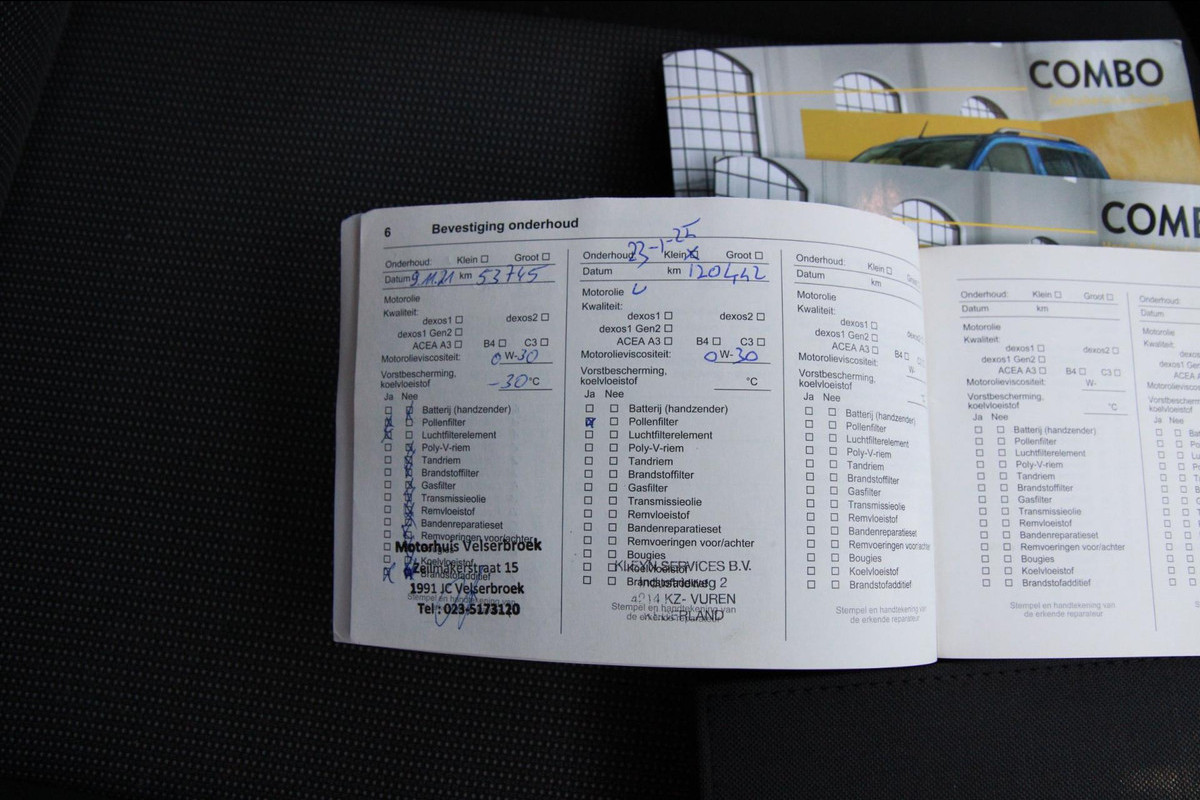 COMBO
COMB
6 Bevestiging onderhoud
Onderhoud: Klein Groot
Datum 9.11.21 km 53745
Motorolie
Kwaliteit:
dexos1 dexos2
dexos1 Gen2
ACEA A3 B4 C3
Motorolieviscositeit: 0 W-30
Vorstbescherming,
koelvloeistof -30 °C
Ja Nee
Batterij (handzender)
Pollenfilter
Luchtfilterelement
Poly-V-riem
Tandriem
Brandstoffilter
Gasfilter
Transmissieolie
Remvloeistof
Bandenreparatieset
Remvoeringen voor/achter
Koelvloeistof
Brandstofadditief
Motorhuis Velserbroek
Zeilmakerstraat 15
1991 JC Velserbroek
Tel : 023-5173120
Stempel en handtekening van
Onderhoud: Klein Groot
23-1-25
Datum km 120442
Motorolie
Kwaliteit:
dexos1 dexos2
dexos1 Gen2
ACEA A3 B4 C3
Motorolieviscositeit: 0 W-30
Vorstbescherming,
koelvloeistof °C
Ja Nee
Batterij (handzender)
Pollenfilter
Luchtfilterelement
Poly-V-riem
Tandriem
Brandstoffilter
Gasfilter
Transmissieolie
Remvloeistof
Bandenreparatieset
Remvoeringen voor/achter
Bougies
Koelvloeistof
Brandstofadditief
KLEYN SERVICES B.V.
Industrieweg 2
4214 KZ- VUREN
NEDERLAND
Stempel en handtekening van
de erkende reparateur
Onderhoud: Klein Groot
Datum km
Motorolie
Kwaliteit:
dexos1
dexos1 Gen2
ACEA A3 B4
Motorolieviscositeit: W-
Vorstbescherming,
koelvloeistof
Ja Nee
Batterij (handzender)
Pollenfilter
Luchtfilterelement
Poly-V-riem
Tandriem
Brandstoffilter
Gasfilter
Transmissieolie
Remvloeistof
Bandenreparatieset
Remvoeringen voor/achter
Bougies
Koelvloeistof
Brandstofadditief
Stempel en handtekening
de erkende reparateur
Onderhoud: Klein Groot
Datum km
Motorolie
Kwaliteit:
dexos1 dexos2
dexos1 Gen2
ACEA A3 B4 C3
Motorolieviscositeit: W-
Vorstbescherming,
koelvloeistof °C
Ja Nee
Batterij (handzender)
Pollenfilter
Luchtfilterelement
Poly-V-riem
Tandriem
Brandstoffilter
Gasfilter
Transmissieolie
Remvloeistof
Bandenreparatieset
Remvoeringen voor/achter
Bougies
Koelvloeistof
Brandstofadditief
Stempel en handtekening van
de erkende reparateur
Onderhoud:
Datum
Motorolie
Kwaliteit:
Ja Nee